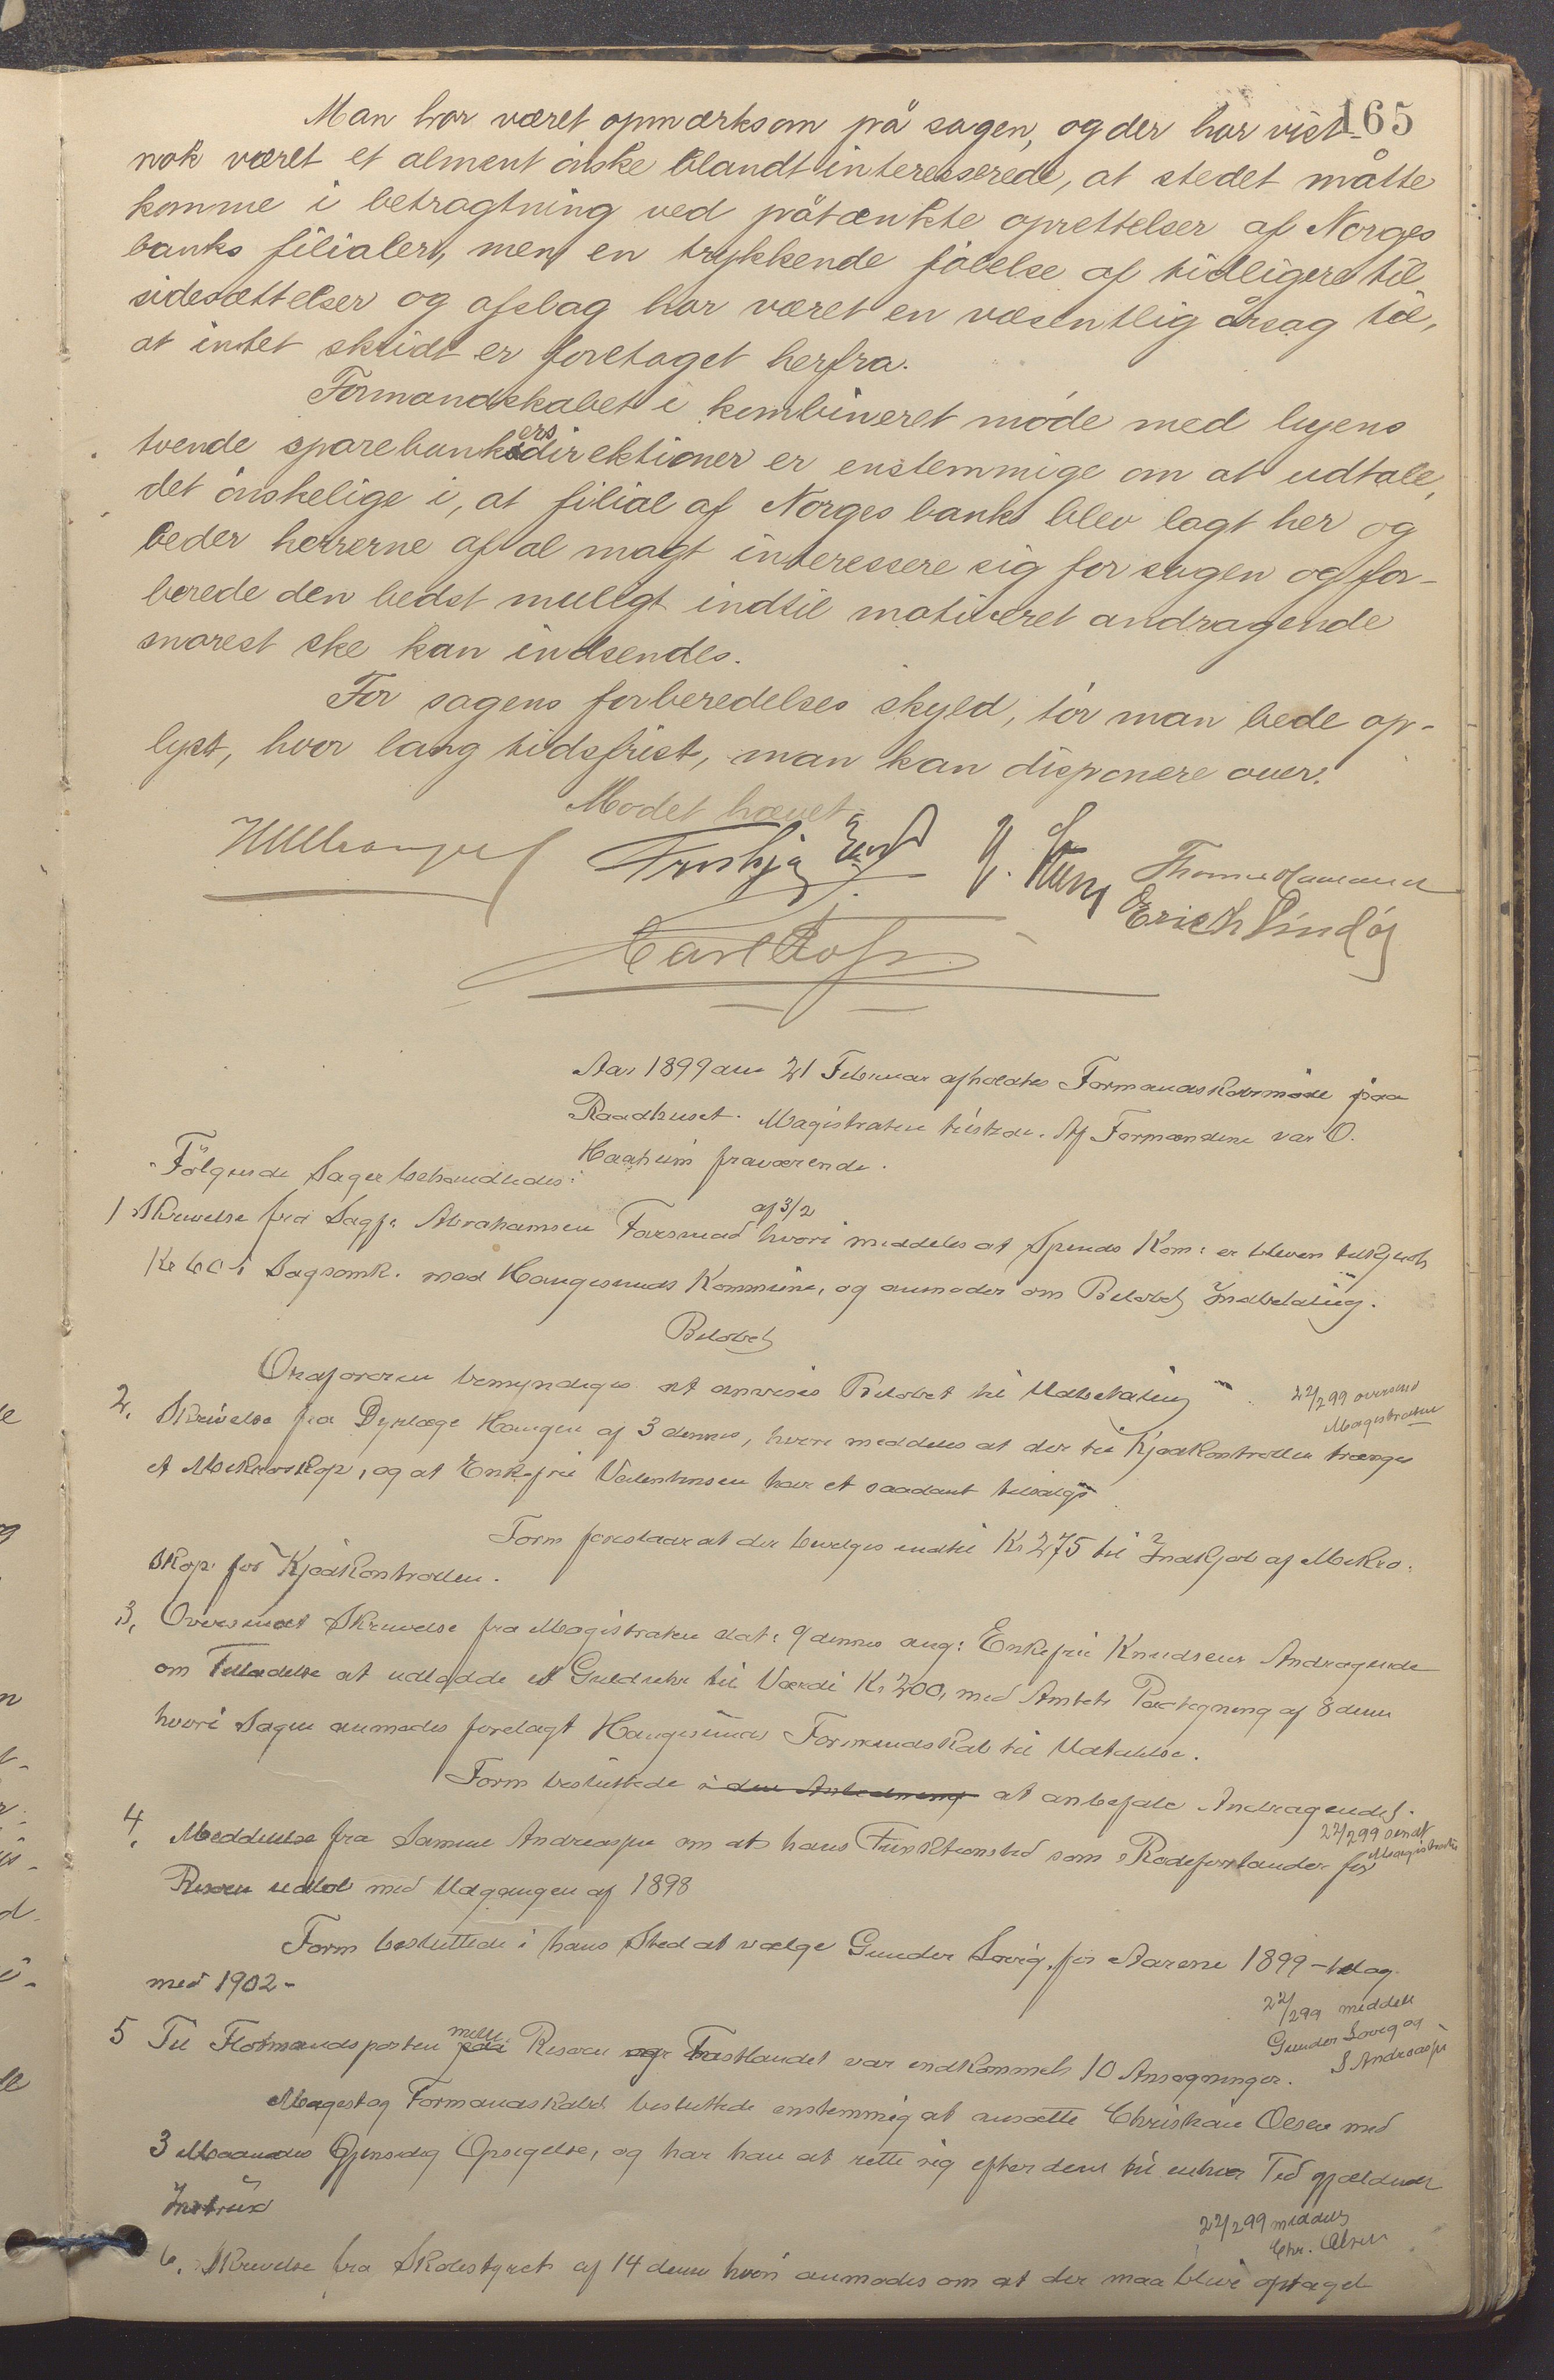 165
Man har været opmærksom på sagen, og der har vist-
nok været et alment ønske blandt interesserede, at stedet måtte
komme i betragtning ved påtænkte oprettelser af Norges
banks filialer, men en trykkende følelse af tidligere til
sidesættelser og afslag har været en væsentlig årsag til,
at intet skridt er foretaget herfra.
Formandskabet i kombineret møde med byens
tvende sparebankers direktioner er enstemmige om at udtale,
det ønskelige i, at filial af Norges bank blev lagt her og
beder herrerne af al magt interessere sig for sagen og for-
berede den bedst muligt indtil motiveret andragende
snarest ske kan indsendes.
For sagens forberedelses skyld, tør man bede op-
lyst, hvor lang tidsfrist, man kan disponere over.
Mødet hævet.
Aar 1899 den 21 Februar afholdtes Formandskabsmøde paa
Raadhuset. Magistraten tilstede. Af Formændene var O.
Haaheim fraværende.
Følgende Sager behandledes:
1 Skrivelse fra Sagf. Abrahamsen Farsund af 3/2 hvori meddeles at Spinds Kom: er bleven tilkjendt
Kr 60 i Sagsomk. mod Haugesunds Kommune, og anmoder om Beløbets Indbetaling.
Beløbet
Ordføreren bemyndiges at anvise Beløbet til Udbetaling
22/2 99 oversend
Magistraten
2. Skrivelse fra Dyrlæge Haugen af 3 dennes, hvori meddeles at der til Kjødkontrollen trænges
et Mikroskop, og at Enkefru Valentinsen har et saadant tilsalgs
Form foreslaar at der bevilges indtil Kr 275 til Indkjøb af Mikro-
skop for Kjødkontrollen.
3. Oversendt Skrivelse fra Magistraten dat: 9 dennes ang: Enkefru Knudsens Andragende
om Tilladelse at udlodde et Guldur til Værdi Kr 200, med Amtets Paategning af 8 dens
hvori Sagen anmodes forelagt Haugesunds Formandskab til Udtalelse.
Form besluttede i den Anledning at anbefale Andragendet.
22/2 99 sendt
Magistraten
4. Meddelelse fra Samme Andreassen om at hans Funktionstid som Rodeforstander for
Risøen udløb med Udgangen af 1898
Form besluttede i hans Sted at vælge Gunder Søvig, for Aarene 1899 - til og
med 1902-
22/2 99 meddelt
Gunder Søvig og
S Andreassen
5 Til Flotmandsposten paa mell. Risøen og Fastlandet var indkommet 10 Ansøgninger.
Magist og Formandskabet besluttede enstemmig at ansætte Christian Olsen med
3 Maaneders Gjensidig Opsigelse, og har han at rette sig efter den til enhver Tid gjældende
Instrux
22/2 99 meddelt
Chr. Olsen
6. Skrivelse fra Skolestyret af 14 dens hvori anmodes om at der maa blive optaget